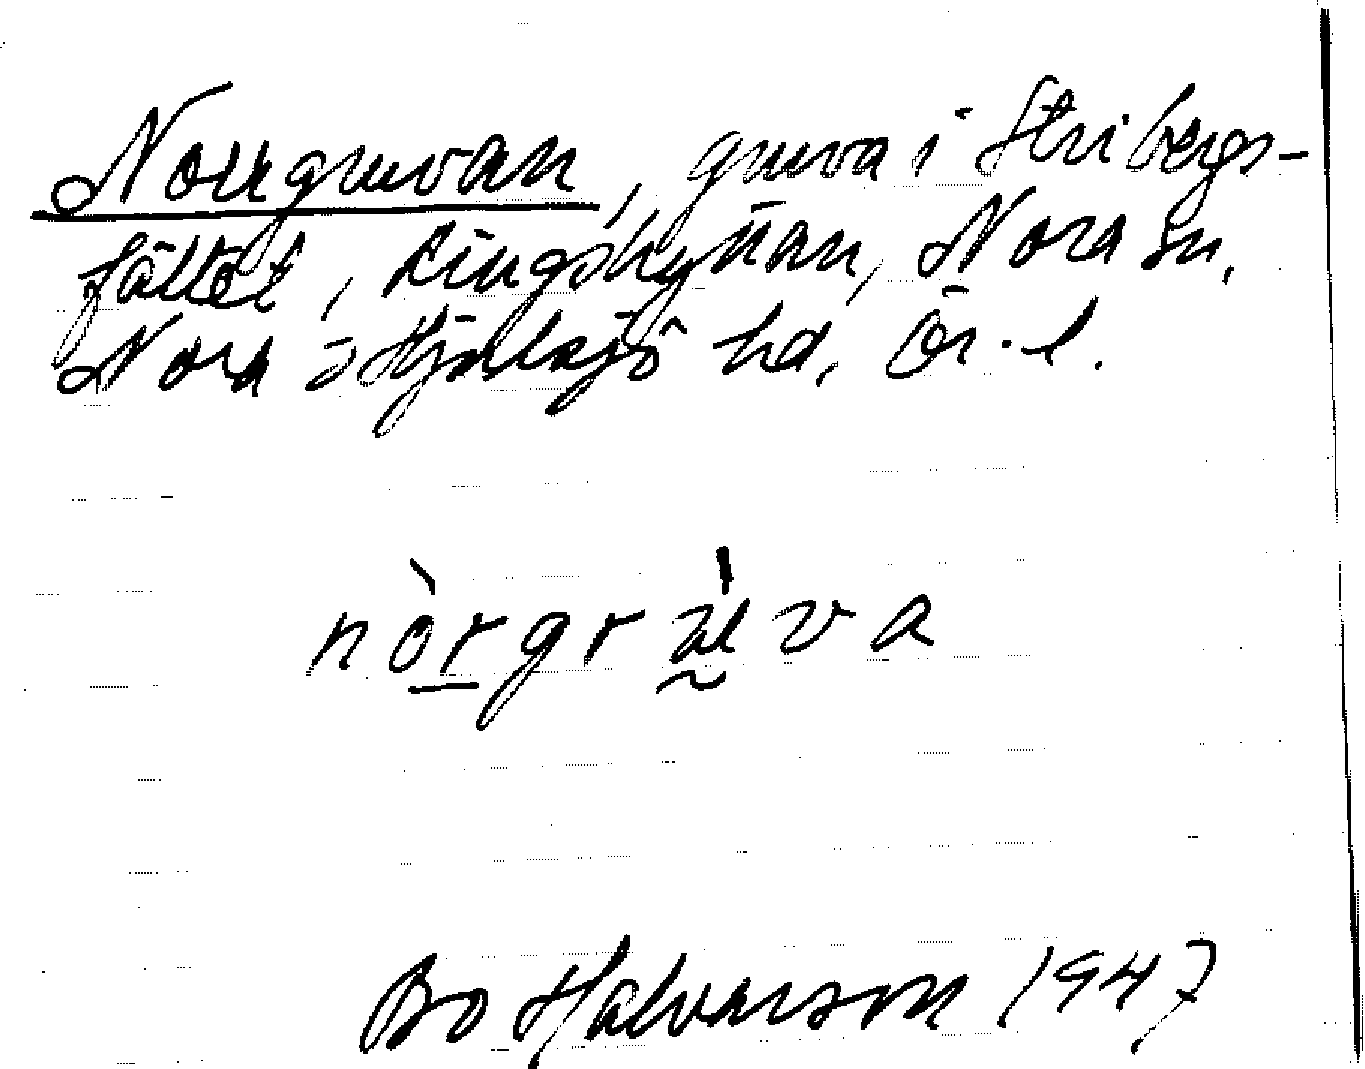 Norrgruvan, gruva i Stribergs-
fältet, Kungshyttan, Nora sn,
Nora o Hjulsjö hd, Ör. l.
nòrgrùva
Bo Halvarson 1947